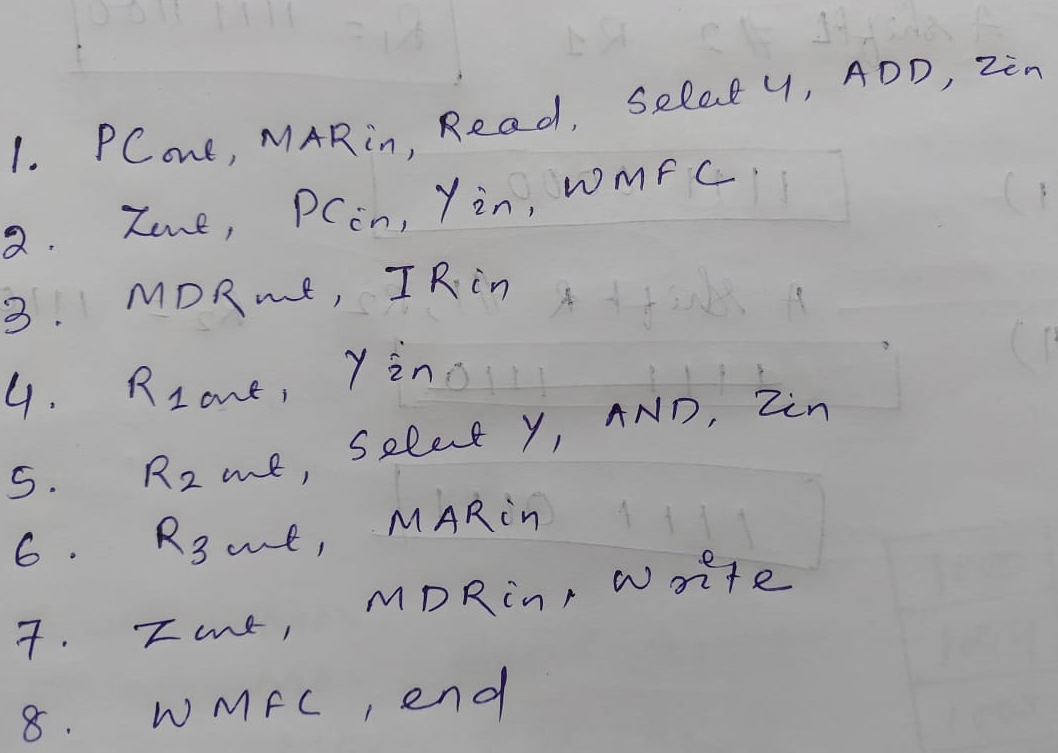 1. PCout, MARin, Read, Select 4, ADD, Zin
2. Zout, PCin, Yin, WMFC
3. MDRout, IRin
4. R1out, Yin
5. R2out, Select Y, AND, Zin
6. R3out, MARin
7. Zout, MDRin, Write
8. WMFC, end